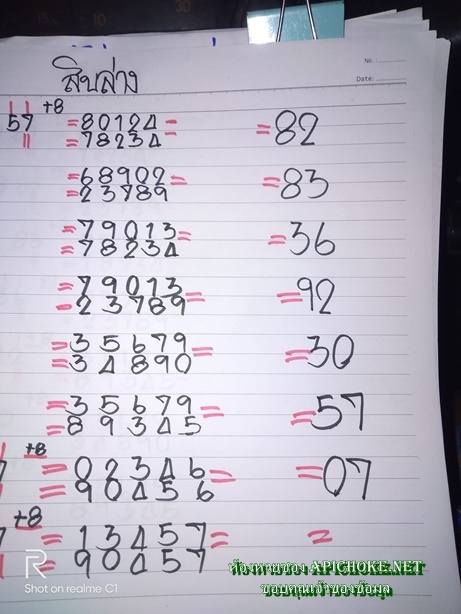 No. :
สิบล่าง
Date:
+8
57 =80124= =82
=78234
=68902= =83
=23789
=79013= =36
=78234
=79013 =92
-23789=
=35679= =30
=34890
=35679= =57
=89345
+8
=02346= =07
=90456
+8
=13457= =
=90457
ห้องหวยซอง APICHOKE.NET
ขอบคุณเจ้าของข้อมูล
R
Shot on realme C1